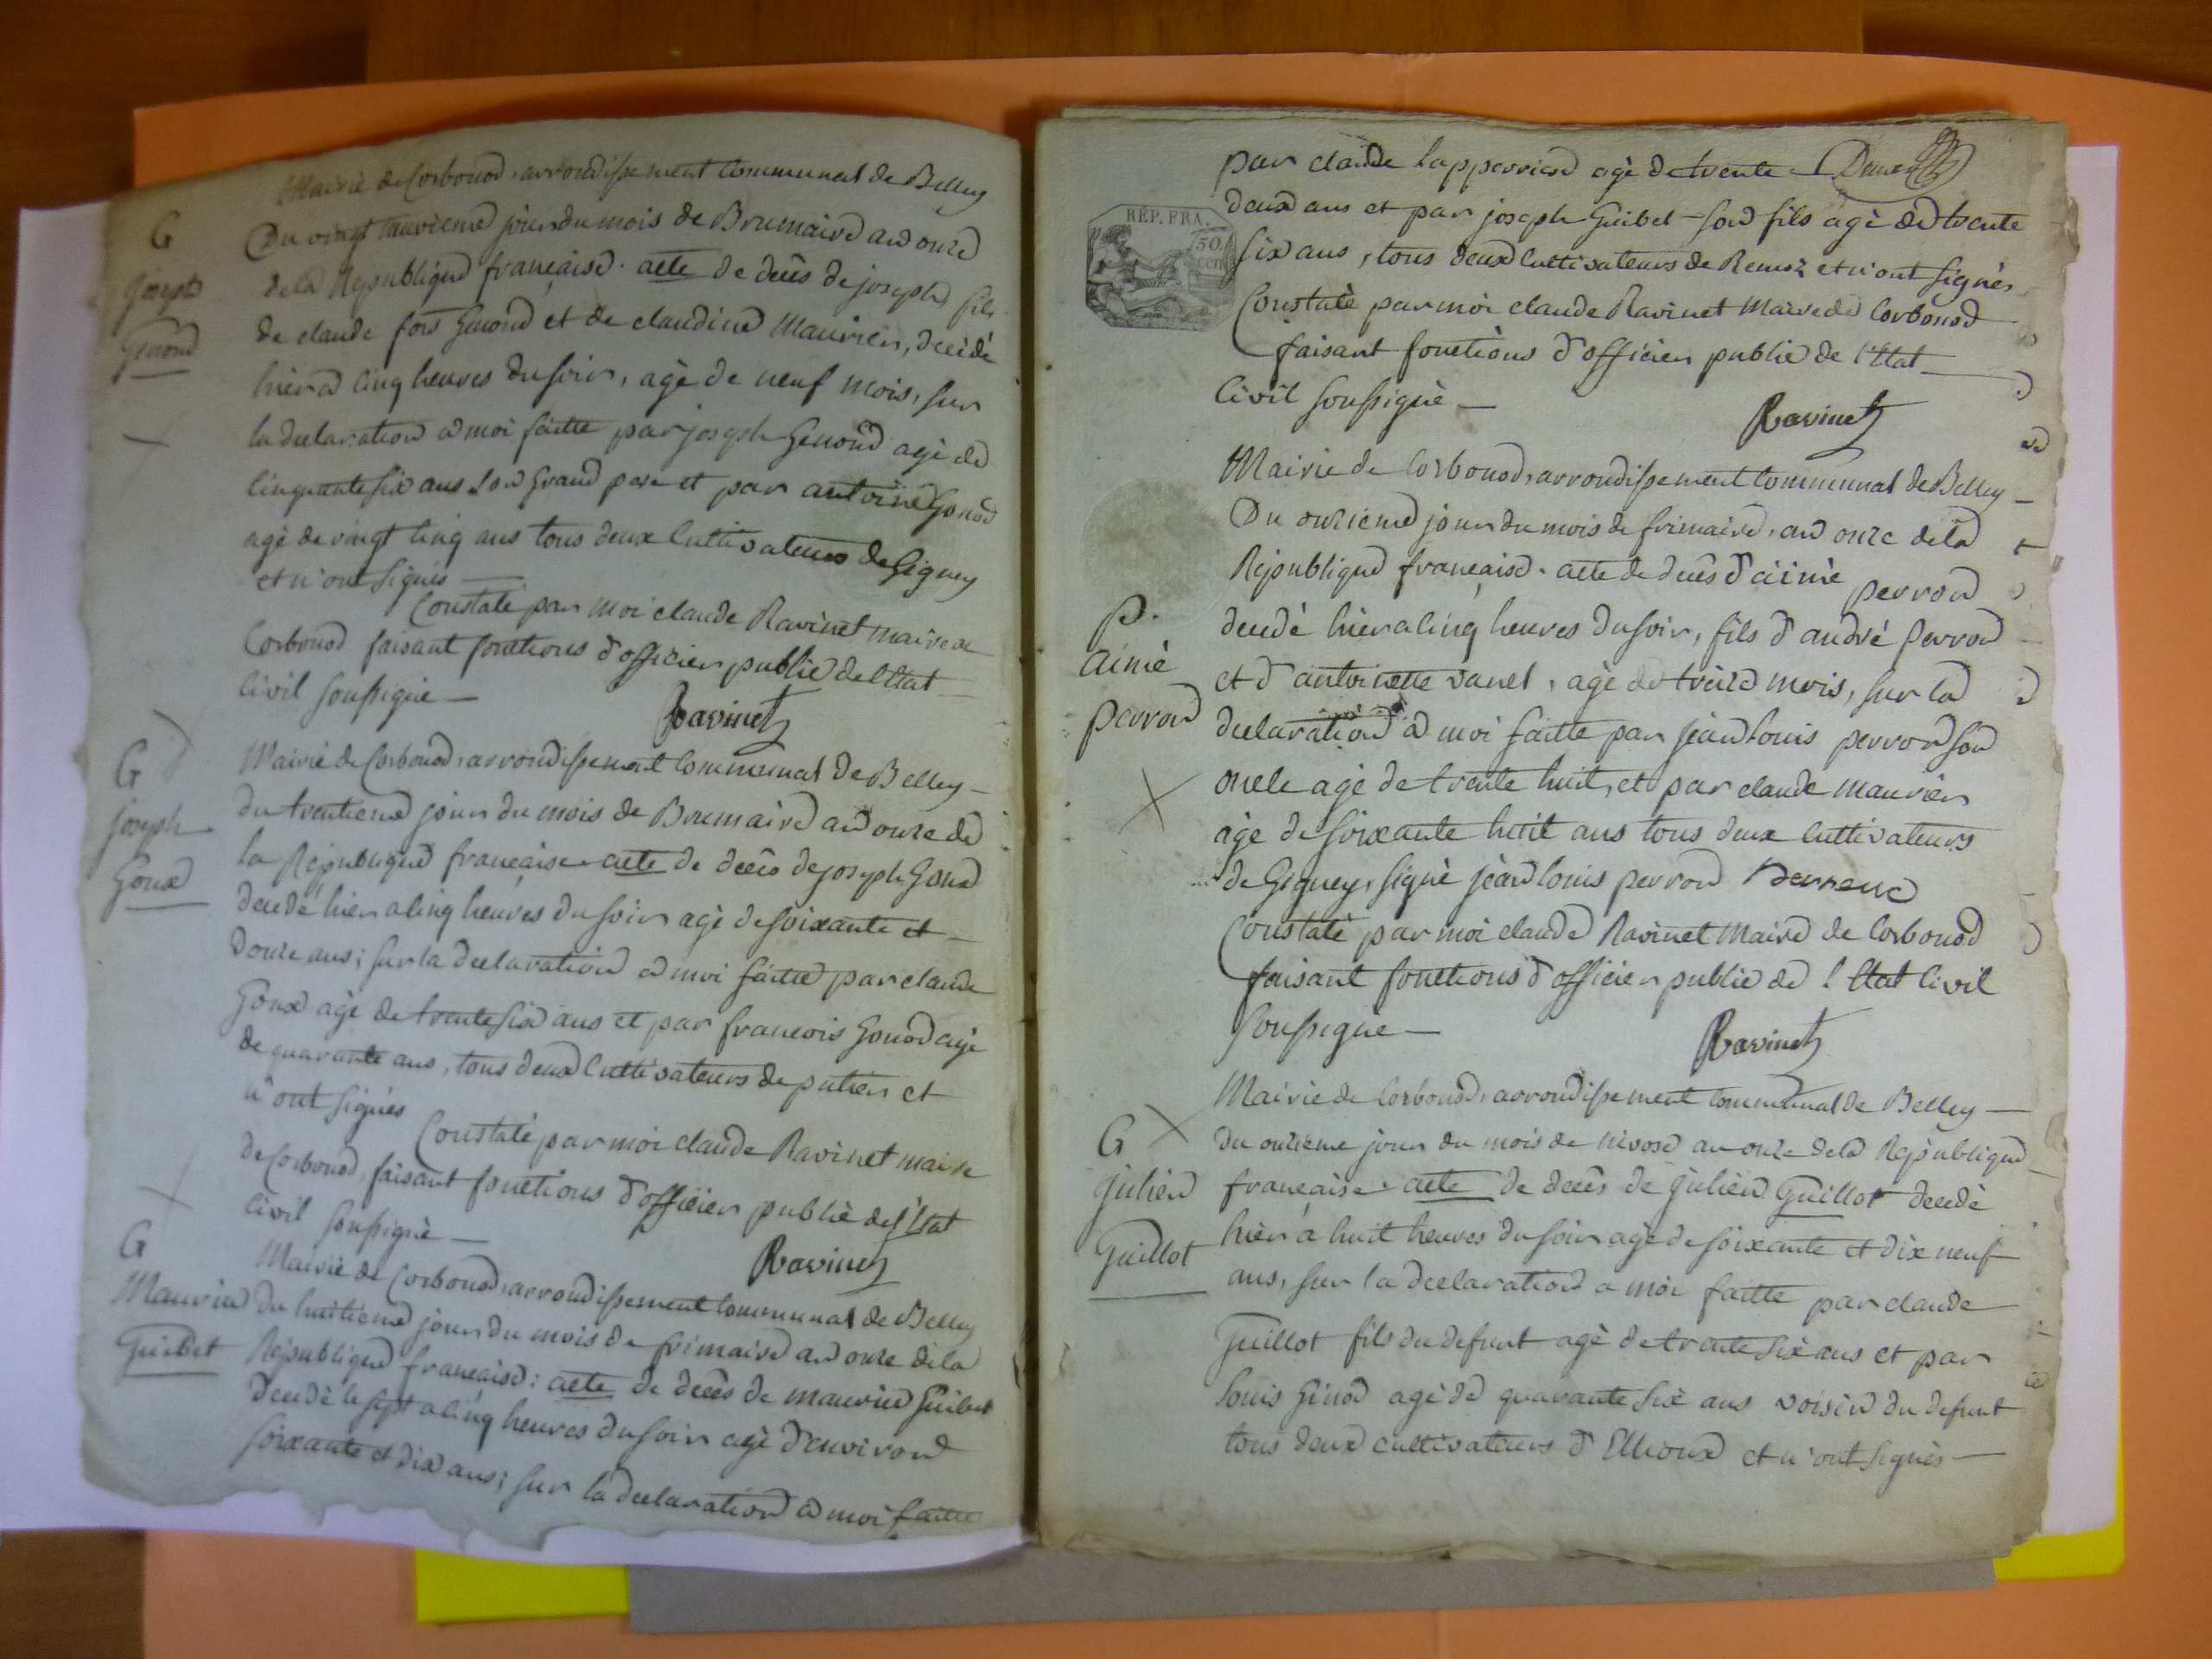 Mairie de Corbonod, arrondissement Communal de Belley
G
Du vingt neuvieme jour du mois de Brumaire an onze
Joseph
Genond
de la Republique française. acte de decès de joseph fils
de claude fois Genond et de claudine Maurier, decédé
hier a cinq heures du soir, agé de neuf mois, sur
la declaration a moi faitte par joseph Genond agé de
cinquante six ans son Grand pere et par antoine Gonod
agé de vingt cinq ans tous deux Cultivateurs de Gigney
et n'ont signés
Constaté par moi claude Ravinet maire de
Corbonod faisant fonctions d'officier public de l'Etat
Civil soussigné
Ravinet
Mairie de Corbonod, arrondissement Communal de Belley
G
joseph
Goux
du trentieme jour du mois de Brumaire an onze de
la Republique française acte de decès de joseph Goux
decedé hier a cinq heures du soir agé de soixante et
douze ans; sur la declaration a moi faitte par claude
Goux agé de trente six ans et par francois Gonod agé
de quarante ans, tous deux Cultivateurs de putier et
n'ont signés
Constaté par moi claude Ravinet maire
de Corbonod, faisant fonctions d'officier public de l'Etat
Civil soussigné
Ravinet
G
Mairie de Corbonod, arrondissement Communal de Belley
Maurice
Guibet
du huitieme jour du mois de frimaire an onze de la
Republique française: acte de decès de maurice Guibet
decedé le sept a cinq heures du soir agé d'environ
soixante et dix ans; sur la declaration a moi faitte
par claude lapperriere agé de trente
RÉP. FRA.
50
cen
deux ans et par joseph Guibet son fils agé de trente
six ans, tous deux Cultivateurs de Remoz et n'ont signés
Constaté par moi claude Ravinet Maire de Corbonod
faisant fonctions d'officier public de l'Etat
Civil soussigné
Ravinet
Mairie de Corbonod, arrondissement Communal de Belley
Du onzieme jour du mois de frimaire, an onze de la
Republique française. acte de decès d'aimé perron
P.
aimé
perron
decedé hier a cinq heures du soir, fils d'andré perron
et d'antoinette vanel, agé de treize mois, sur la
declaration a moi faitte par jean louis perron son
oncle agé de trente huit, et par claude maurier
agé de soixante huit ans tous deux Cultivateurs
de Gigney, signé jean louis perron
Constaté par moi claude Ravinet Maire de Corbonod
faisant fonctions d'officier public de l'Etat Civil
soussigné
Ravinet
Mairie de Corbonod, arrondissement Communal de Belley
G
julien
Guillot
du onzieme jour du mois de nivose an onze de la Republique
française. acte de decès de julien Guillot decedé
hier a huit heures du soir agé de soixante et dix neuf
ans, sur la declaration a moi faitte par claude
Guillot fils du defunt agé de trente six ans et par
louis Ginod agé de quarante six ans voisin du defunt
tous deux cultivateurs d'Etthoux et n'ont signés